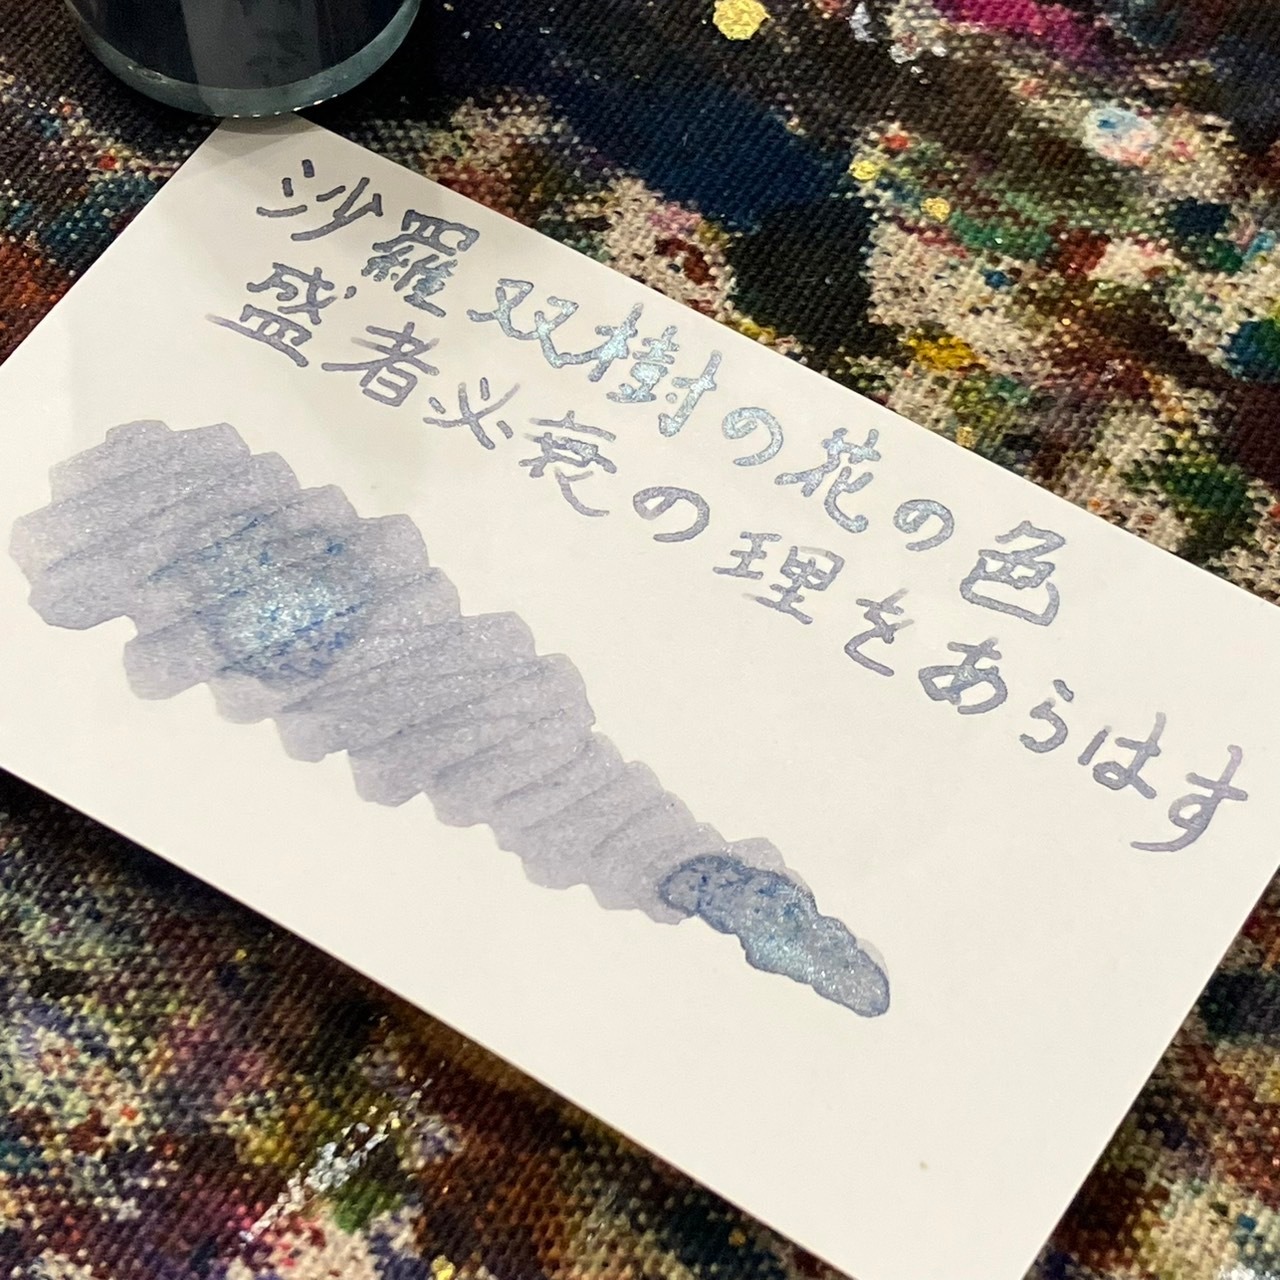 沙羅双樹の花の色
盛者必衰の理をあらはす